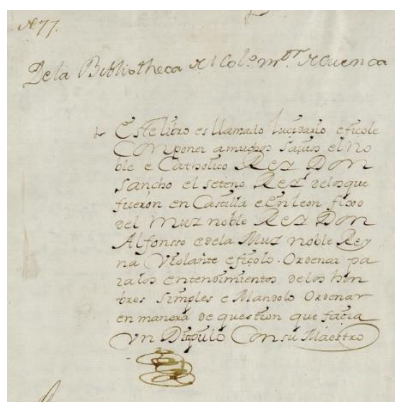 Nº 77.
De la Bibliotheca del Colº mºr de Cuenca
Este libro es llamado Lucidario e fiçole
Componer a muchos Saçius el No
ble e Catholico REY DON
Sancho el seteno REY de los que
fueron en Castilla e En leon fixo
del muy noble REY DON
Alfonsso e de la Muy noble Rey
na Violante e fiçolo Ordenar pa
ra los entendimientos de los hon
bres Simples e Mandolo Ordenar
en manera de question que facia
Un Diçipulo Con su Maestro